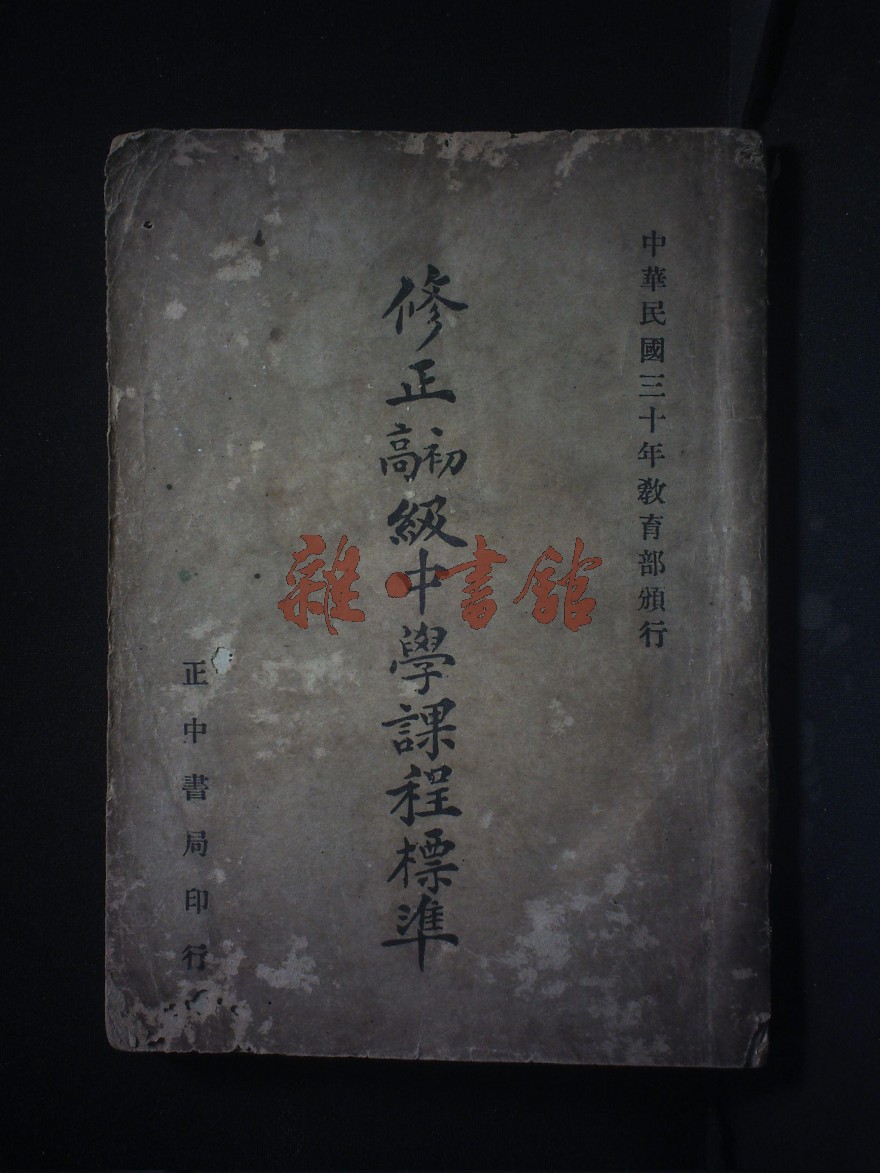 中華民國三十年教育部頒行
修正初高級中學課程標準
正中書局印行
雜·書館